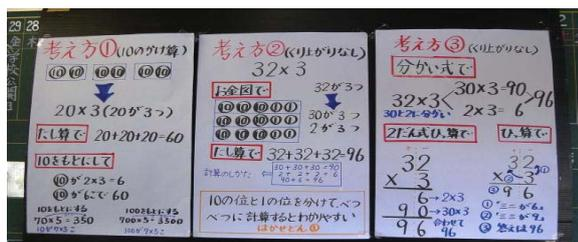 29 28
金 木
考え方①(10のかけ算)
⑩⑩ ⑩⑩ ⑩⑩
20×3(20が3つ)
たし算で 20+20+20=60
10をもとにして
⑩が2×3=6
⑩が6こで60
10をもとにする
70×5=350
10が7×5こ
100をもとにする
700×5=3500
100が7×5こ
考え方②(くり上がりなし)
32×3
お金図で
32が3つ
⑩⑩⑩①①
⑩⑩⑩①①
⑩⑩⑩①①
30が3つ
2が3つ
たし算で 32+32+32=96
計算のしかた
30+30+30=90
2+2+2=6
90+6=96
10の位と1の位を分けて、べつ
べつに計算するとわかりやすい
はかせどん①
考え方③(くり上がりなし)
分かい式で
32×3
30×3=90
2×3=6
96
30と2に分かい
2だん式ひっ算で
32
×3
6→2×3
90→30×3
96
合わせて
96
ひっ算で
32
×3
96
①"三二が6"
②"三三が9"
③答えは96